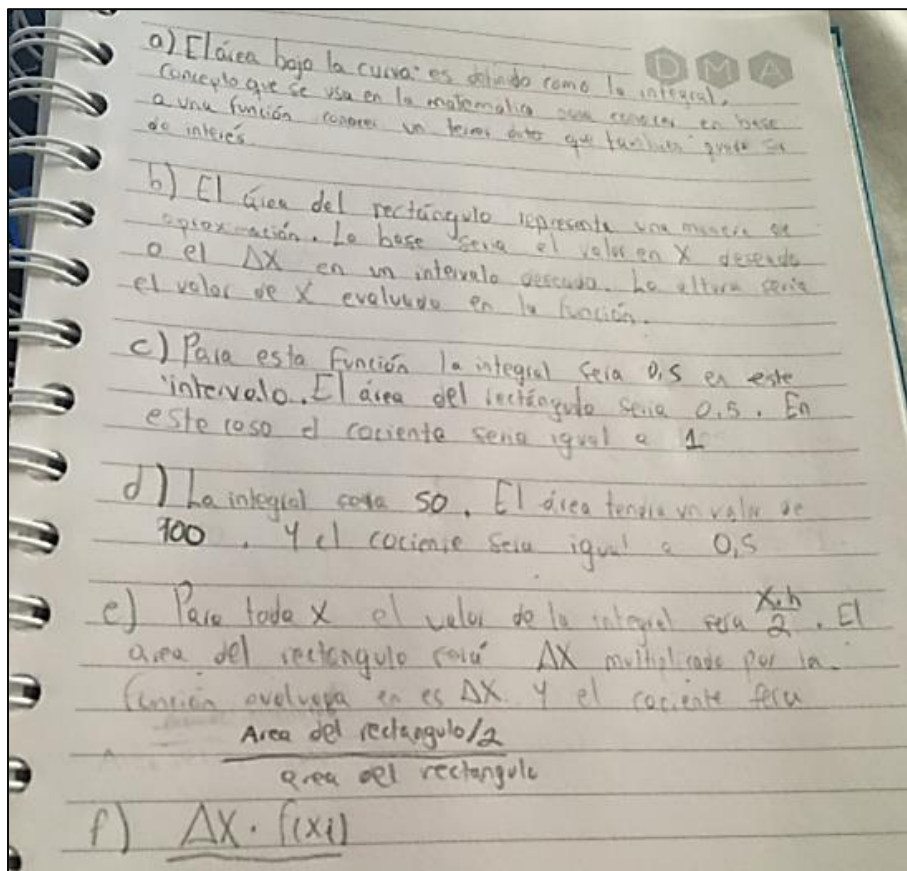 DMA
a) El área bajo la curva: es definido como la integral,
concepto que se usa en la matematica para conocer en base
a una función conocer un datos que tambien puede ser
de interés.
b) El área del rectángulo representa una manera de
aproximación. La base seria el valor en X deseado
o el ΔX en un intervalo deseado. La altura seria
el valor de X evaluado en la función.
c) Para esta función la integral sera 0,5 en este
intervalo. El área del rectángulo seria 0.5. En
este caso el cociente seria igual a 1
d) La integral 50. El área tendria un valor de
100, y el cociente sera igual a 0,5
e) Para todo X el valor de la integral sera X.h/2. El
area del rectangulo será ΔX multiplicado por la
función evaluada en es ΔX. y el cociente sera
Area del rectangulo/2
area del rectangulo
f) ΔX . f(xi)